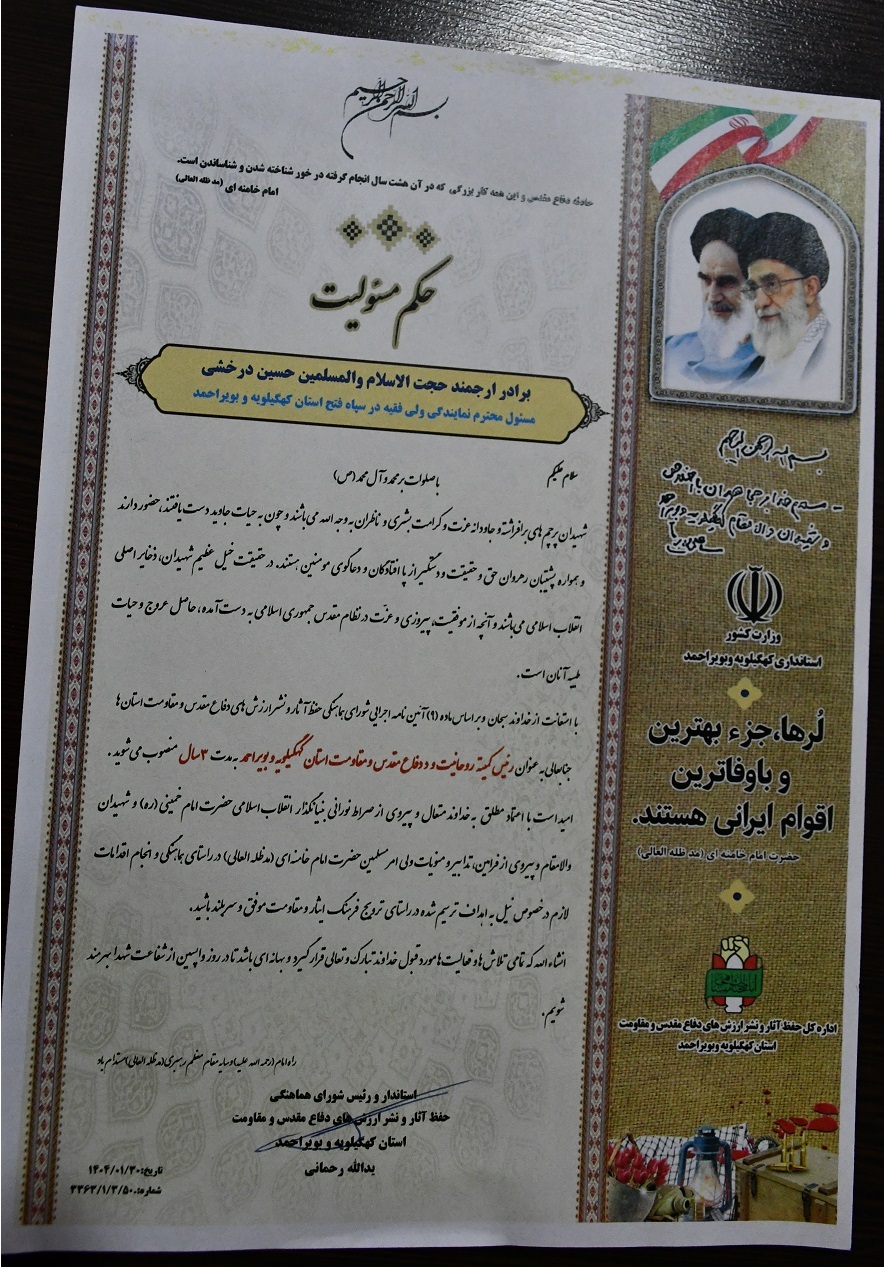 بسم الله الرحمن الرحیم
حادثه دفاع مقدس و این همه کار بزرگی که در آن هشت سال انجام گرفته در خور شناخته شدن و شناساندن است.
امام خامنه ای (مد ظله العالی)
حکم مسئولیت
برادر ارجمند حجت الاسلام والمسلمین حسین درخشی
مسئول محترم نمایندگی ولی فقیه در سپاه فتح استان کهگیلویه و بویراحمد
سلام علیکم
با صلوات بر محمد و آل محمد (ص)
شهیدان پرچم های برافراشته و جاودانه عزت و کرامت بشری و ناظران به وجه الله می باشند و چون به حیات جاوید دست یافتند، حضور دارند
و همواره پشتیبان رهروان حق و حقیقت و دستگیر از پا افتادگان و دعاگوی مومنین هستند. در حقیقت خیل عظیم شهیدان، ذخایر اصلی
انقلاب اسلامی می باشند و آنچه از موفقیت، پیروزی و عزت در نظام مقدس جمهوری اسلامی به دست آمده، حاصل عروج و حیات
طیبه آنان است.
با استعانت از خداوند سبحان و بر اساس ماده (۹) آئین نامه اجرایی شورای هماهنگی حفظ آثار و نشر ارزش های دفاع مقدس و مقاومت استان ها
جنابعالی به عنوان رئیس کمیته روحانیت و دفاع مقدس و مقاومت استان کهگیلویه و بویراحمد به مدت ۳ سال منصوب می شوید.
امید است با اعتماد مطلق به خداوند متعال و پیروی از صراط نورانی بنیانگذار انقلاب اسلامی حضرت امام خمینی (ره) و شهیدان
والامقام و پیروی از فرامین، تدابیر و منویات ولی امر مسلمین حضرت امام خامنه ای (مدظله العالی) در راستای هماهنگی و انجام اقدامات
لازم در خصوص نیل به اهداف ترسیم شده در راستای ترویج فرهنگ ایثار و مقاومت موفق و سربلند باشید.
انشاء الله که تمامی تلاش ها و فعالیت ها مورد قبول خداوند تبارک و تعالی قرار گیرد و بهانه ای باشد تا در روز واپسین از شفاعت شهدا بهره مند
شویم.
راه امام (رحمه الله علیه) و سایه مقام معظم رهبری (مدظله العالی) مستدام باد
استاندار و رئیس شورای هماهنگی
حفظ آثار و نشر ارزش های دفاع مقدس و مقاومت
استان کهگیلویه و بویراحمد
یدالله رحمانی
تاریخ: ۱۴۰۴/۰۱/۳۰
شماره: ۳۳۶۳/۱/۳/۵۰
بسم الله الرحمن الرحیم
وزارت کشور
استانداری کهگیلویه وبویراحمد
لُرها، جزء بهترین
و باوفاترین
اقوام ایرانی هستند.
حضرت امام خامنه ای (مد ظله العالی)
اداره کل حفظ آثار و نشر ارزش های دفاع مقدس و مقاومت
استان کهگیلویه وبویراحمد